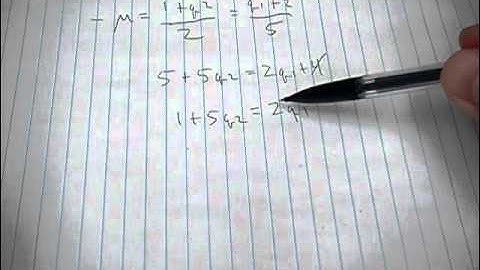 - μ = 1+q2/2 = q1+2/5
5 + 5q2 = 2q1+4
1 + 5q2 = 2q1